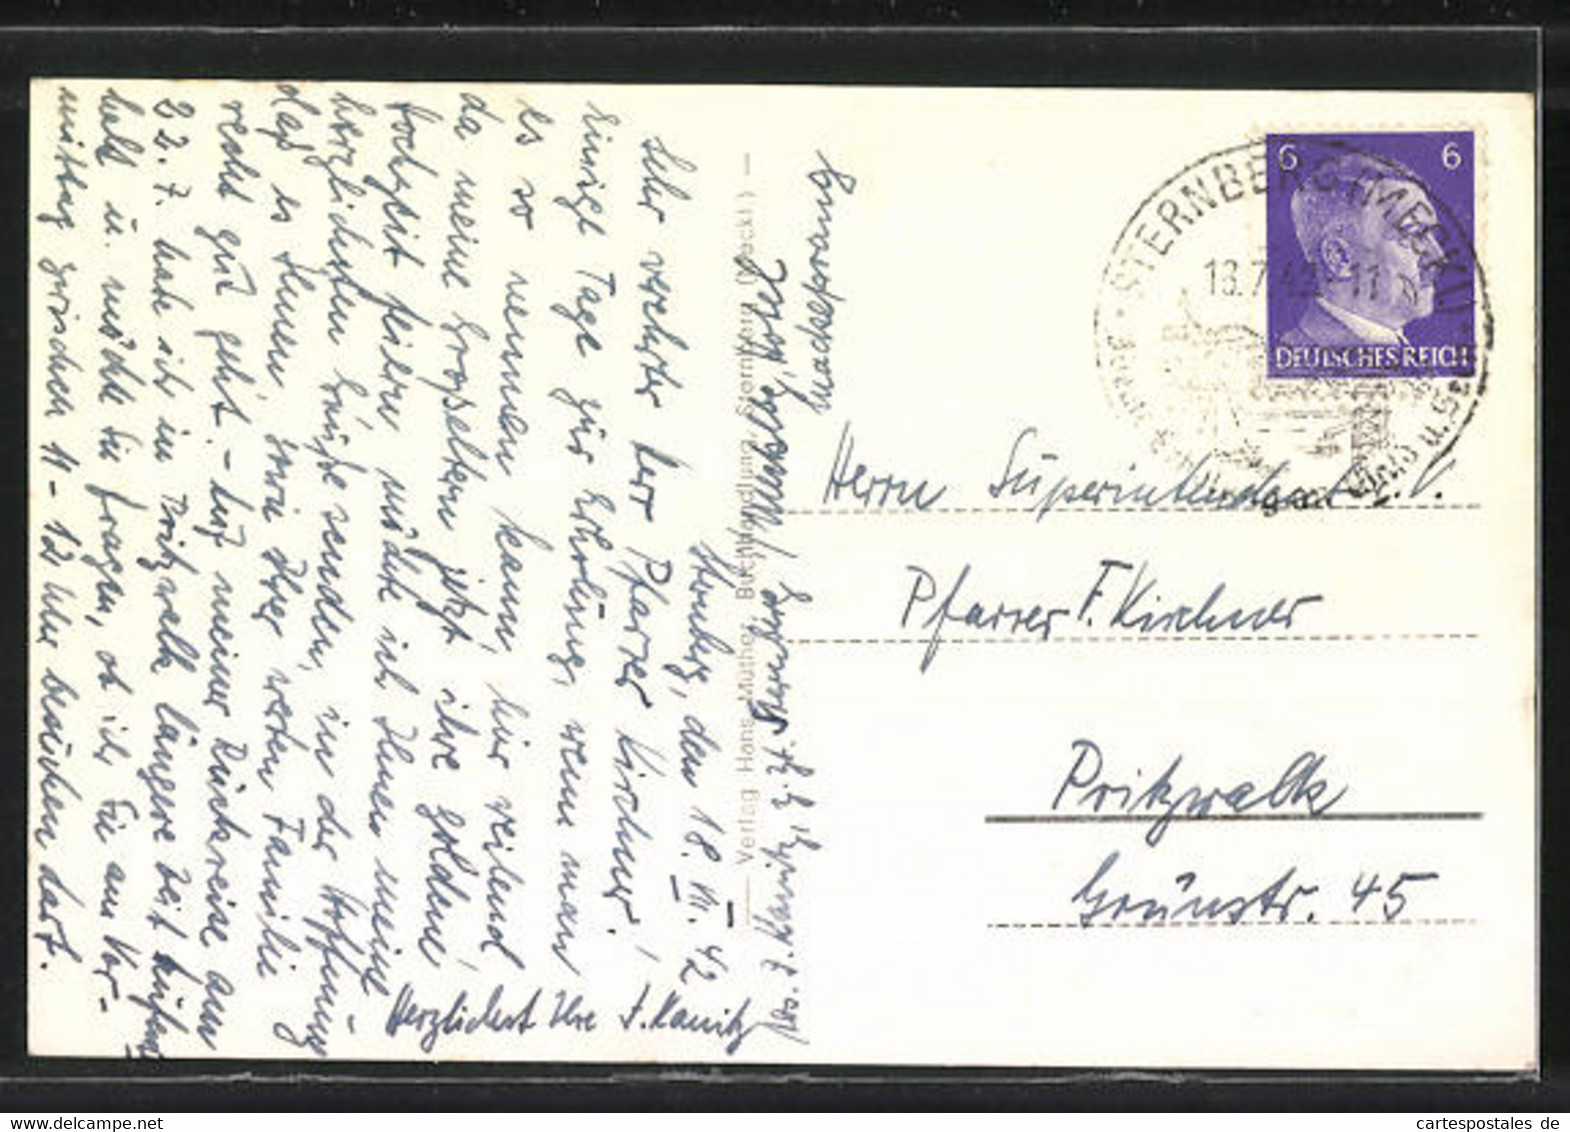 Sternberg, den 18. VII. 42
Sehr verehrter Herr Pfarrer Kirchner!
Einige Tage zur Erholung, wenn man
es so nennen kann, hier weilend,
da meine Großeltern jetzt ihre goldene
Hochzeit feiern, möchte ich Ihnen meine
herzlichsten Grüße senden, in der Hoffnung,
daß es Ihnen sowie Ihrer werten Familie
recht gut geht. - Auf meiner Rückreise am
22. 7. habe ich in Pritzwalk längere Zeit
halt u. möchte Sie fragen, ob ich Sie am Vor-
mittag zwischen 11 - 12 Uhr besuchen darf.
Herzlichst Ihre F. Kanitz
Abs. F. Kanitz z. Zt. Sternberg
Mackeprang
Verlag Hans Müthe, Buchhandlung, Sternberg (Meckl)
6 6
DEUTSCHES REICH
STERNBERG (MECKL)
18.7.42-11
Wald u. Seen
Herrn Superintendent i. V.
Pfarrer F. Kirchner
Pritzwalk
Grünstr. 45
cartespostales de